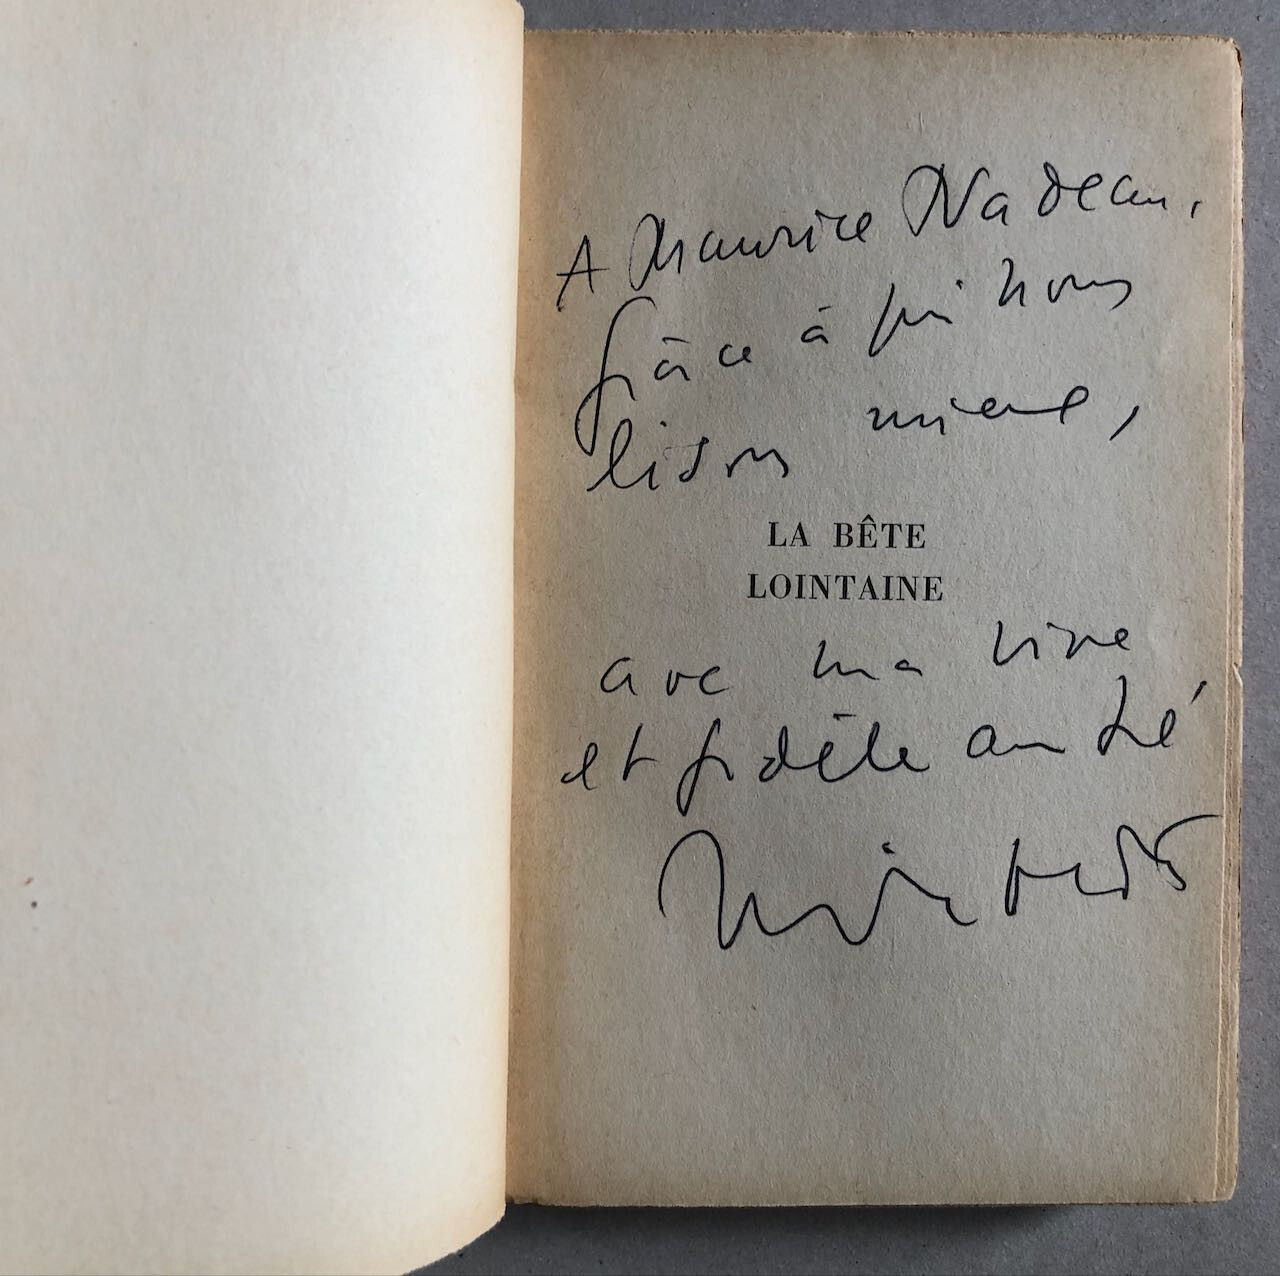 A Maurice Nadeau,
grâce à qui nous
lisons mieux,
LA BÊTE
LOINTAINE
avec ma vive
et fidèle amitié